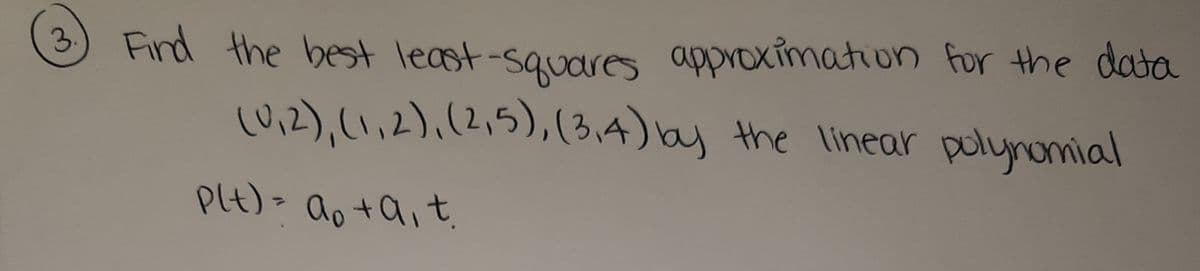 3. Find the best least-squares approximation for the data
(0,2),(1,2),(2,5),(3,4) by the linear polynomial
P(t) = a₀ + a₁t.